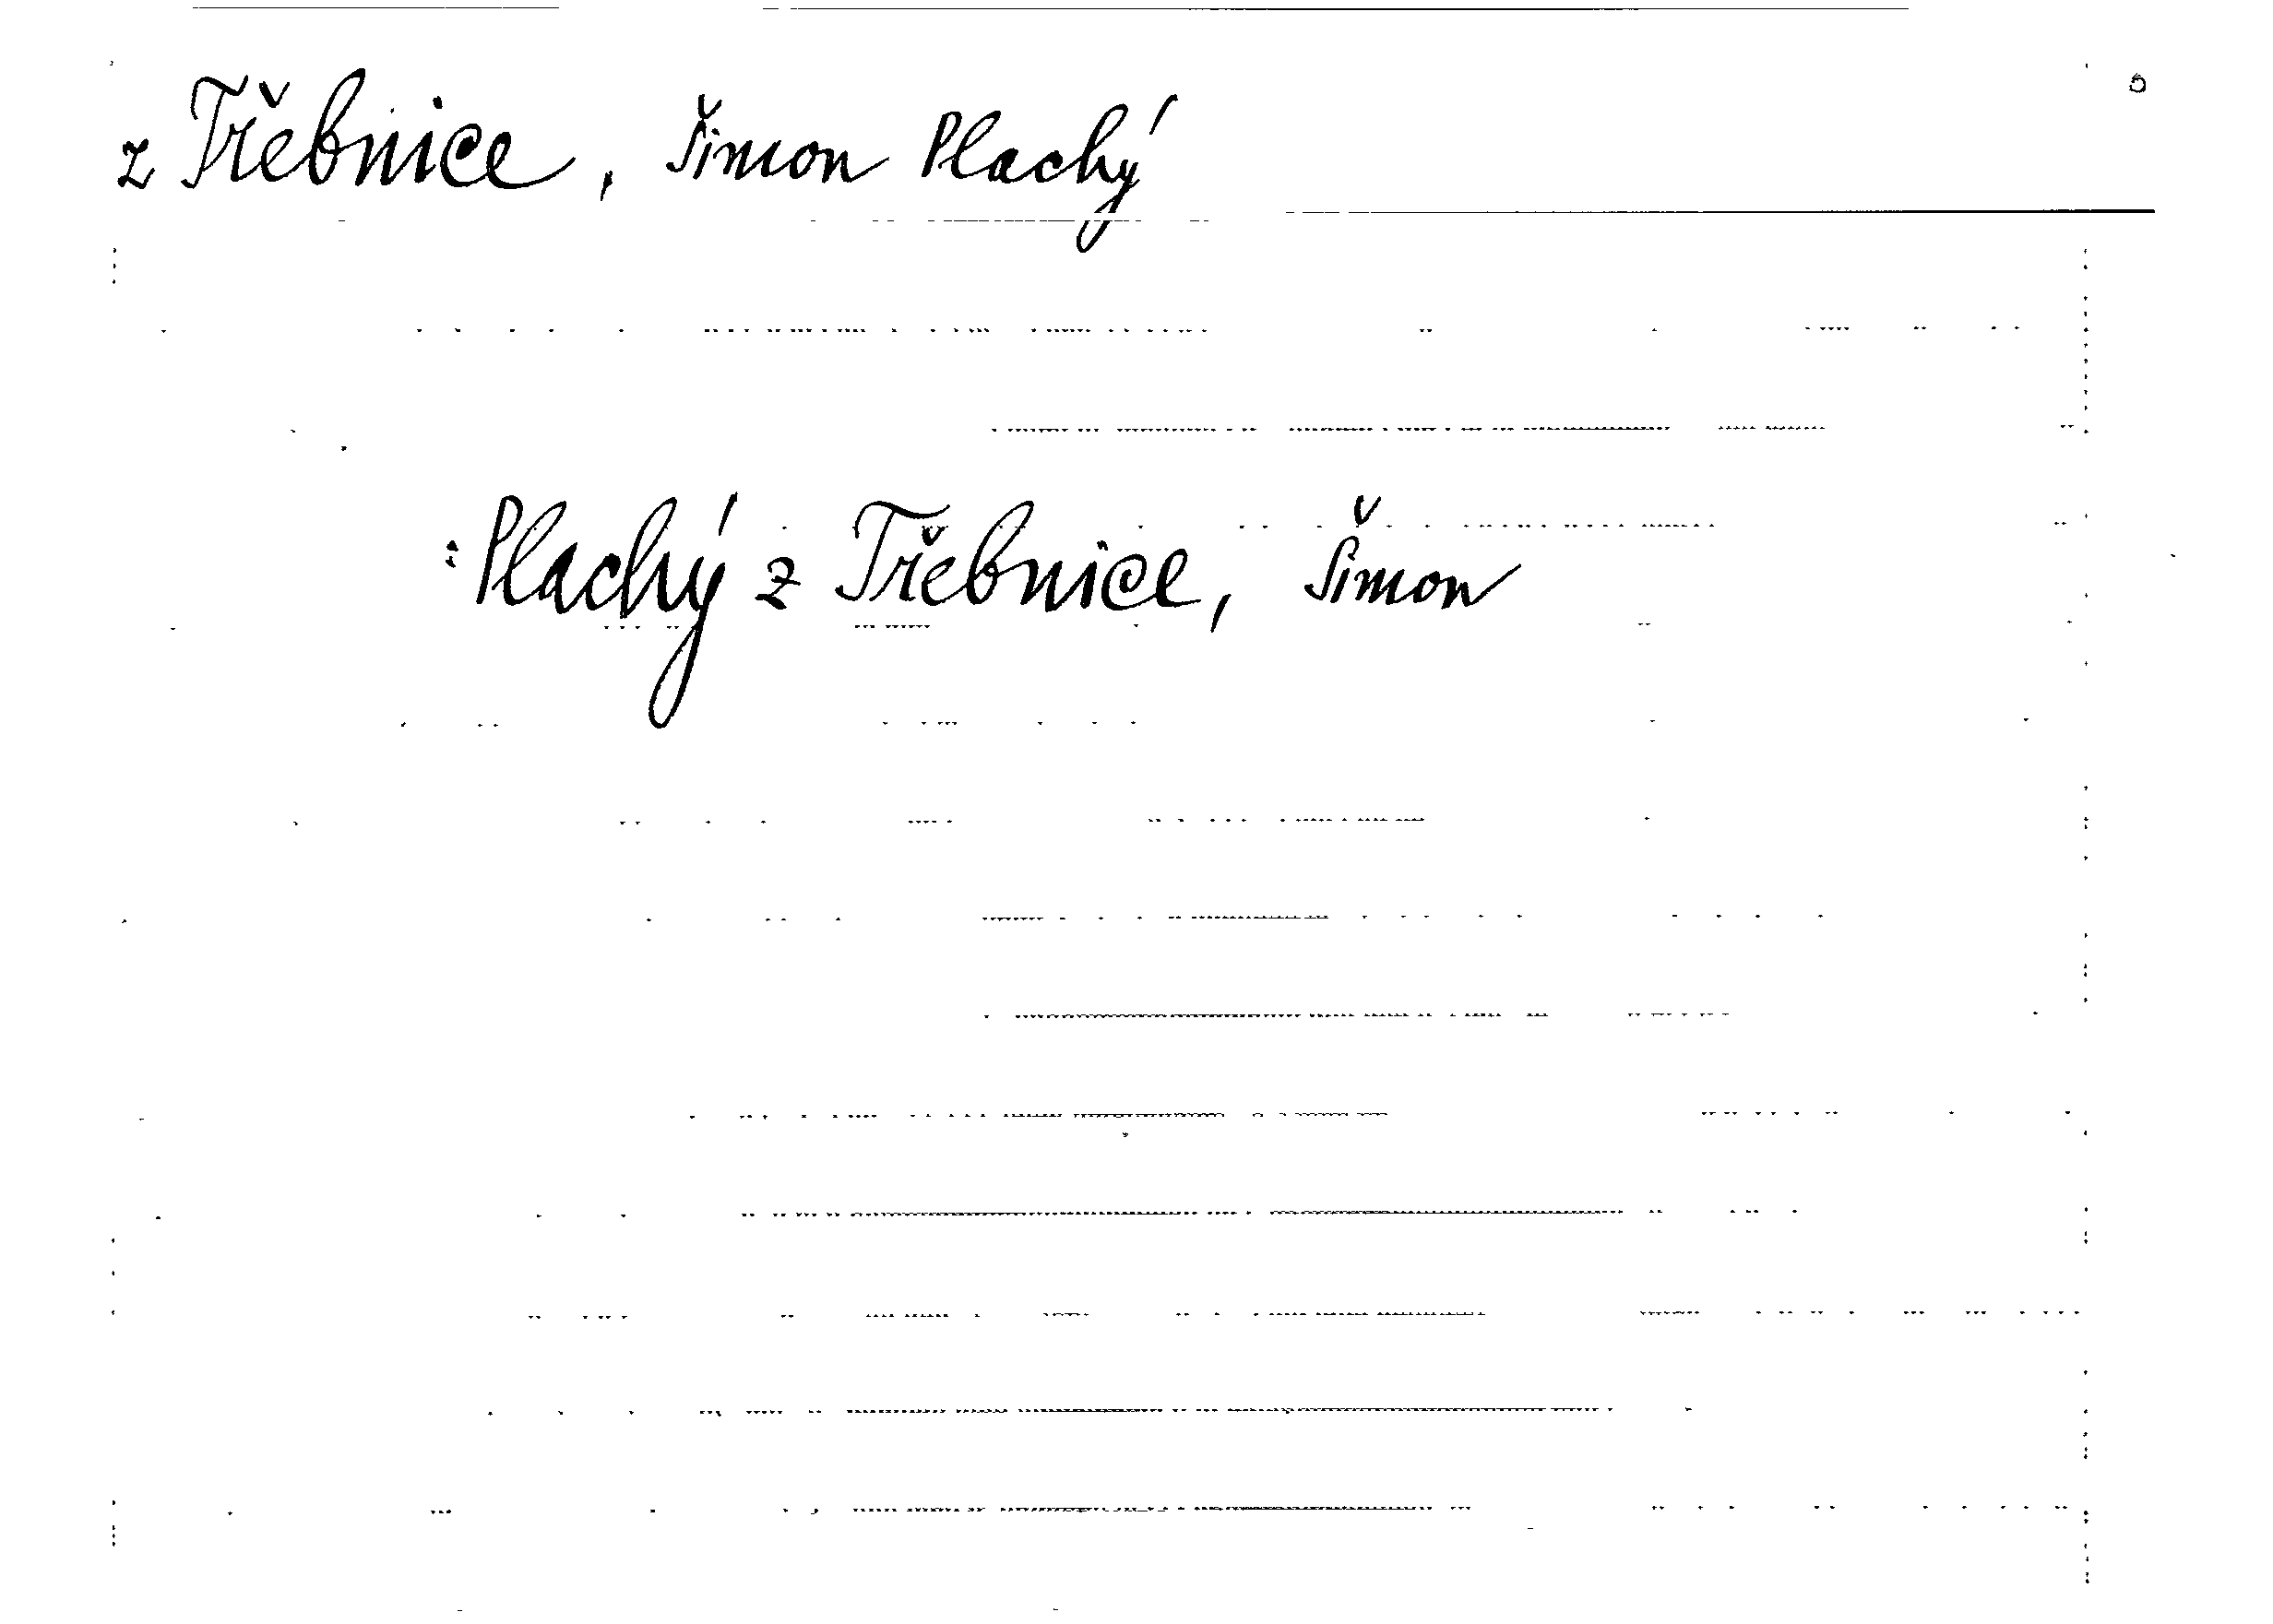 z Třebnice, Šimon Plachý
: Plachý z Třebnice, Šimon